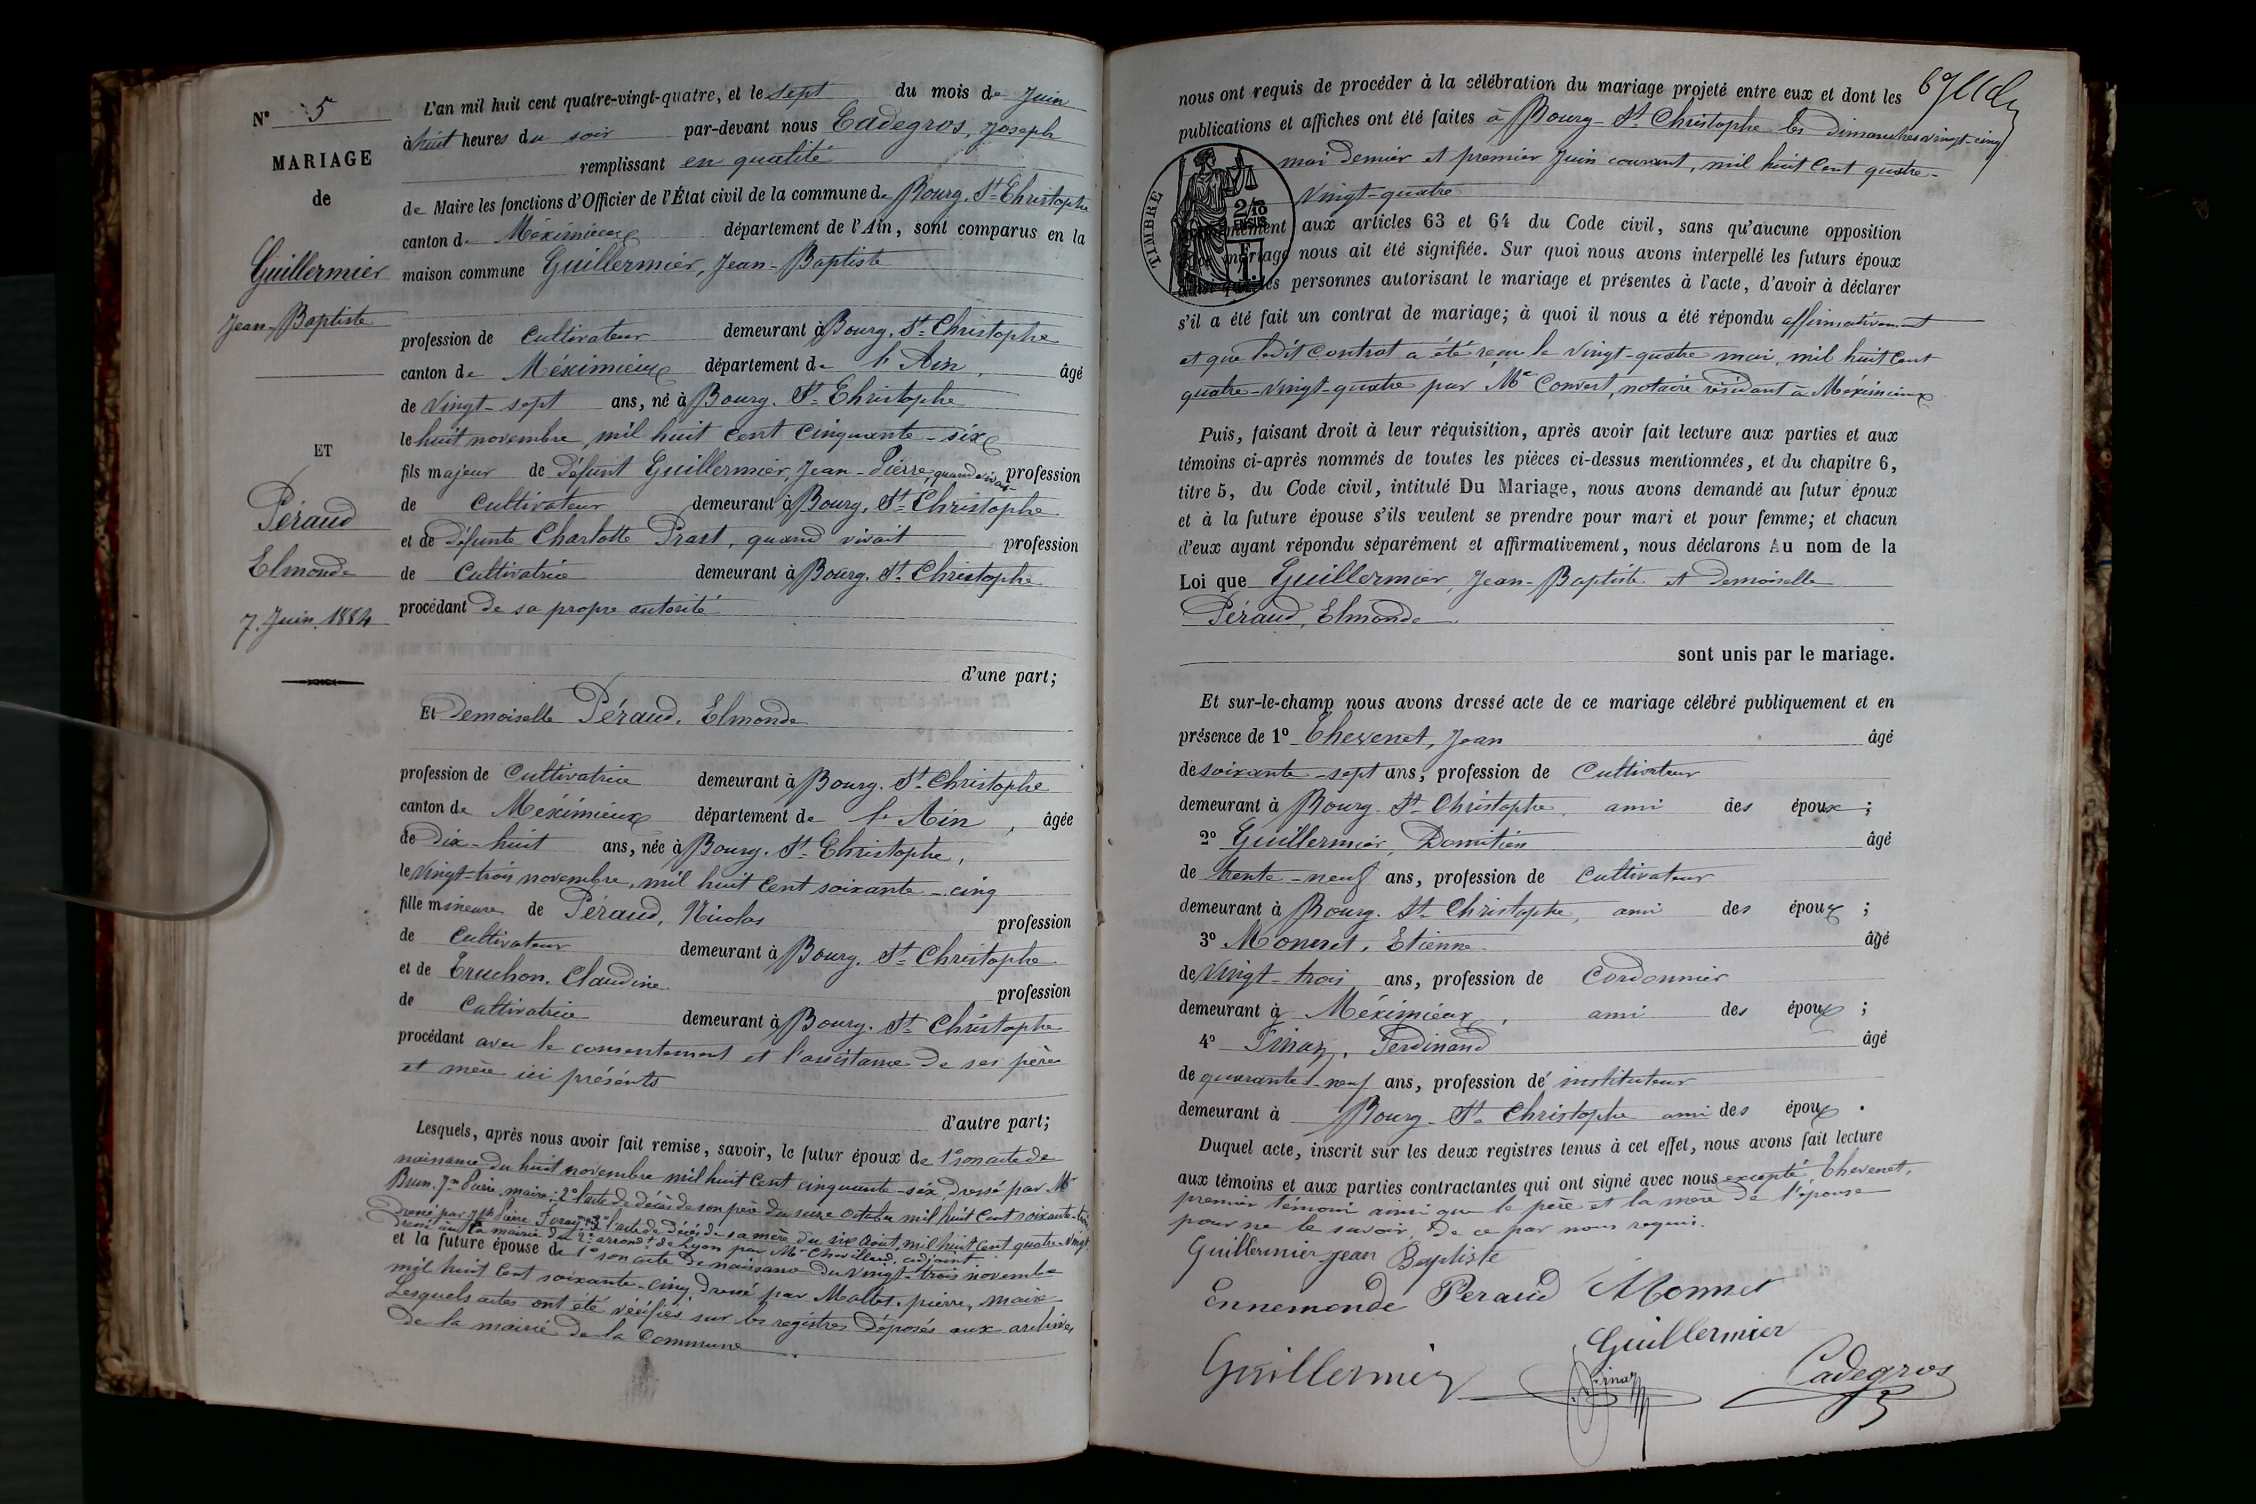 N° 5
MARIAGE
de
Guillermier
Jean-Baptiste
ET
Péraud
Elmonde
7. Juin. 1884
L'an mil huit cent quatre-vingt-quatre, et le sept du mois de Juin
à huit heures du soir par-devant nous Cadegros, Joseph
remplissant en qualité
de Maire les fonctions d'Officier de l'État civil de la commune de Bourg. St Christophe
canton de Méximieux département de l'Ain, sont comparus en la
maison commune Guillermier, Jean-Baptiste
profession de cultivateur demeurant à Bourg. St Christophe
canton de Méximieux département de l'Ain, âgé
de vingt-sept ans, né à Bourg. St Christophe
le huit novembre mil huit cent cinquante-six
fils majeur de défunt Guillermier, Jean-Pierre, quand vivait profession
de cultivateur demeurant à Bourg. St Christophe
et de défunte Charlotte Prast, quand vivait profession
de cultivatrice demeurant à Bourg. St Christophe
procédant de sa propre autorité
d'une part;
Et demoiselle Péraud. Elmonde
profession de cultivatrice demeurant à Bourg. St Christophe
canton de Méximieux département de l'Ain, âgée
de dix-huit ans, née à Bourg. St Christophe,
le vingt-trois novembre, mil huit cent soixante-cinq
fille mineure de Péraud, Nicolas profession
de cultivateur demeurant à Bourg. St Christophe
et de Truchon. Claudine profession
de cultivatrice demeurant à Bourg. St Christophe
procédant avec le consentement et l'assistance de ses père
et mère ici présents
d'autre part;
Lesquels, après nous avoir fait remise, savoir, le futur époux de 1° son acte de
naissance du huit novembre mil huit cent cinquante-six dressé par Mr
maire; 2° l'acte de décès de son père du seize octobre mil huit cent soixante-trois
dressé par Jph Pierre 3° l'acte de décès de sa mère du six août, mil huit cent quatre-vingt
dressé à la mairie du 2e arrondt de Lyon par Mr adjoint
et la future épouse de 1° son acte de naissance du vingt-trois novembre
mil huit cent soixante-cinq, dressé par pierre, maire
Lesquels actes ont été vérifiés sur les registres déposés aux archives
de la mairie de la commune.
nous ont requis de procéder à la célébration du mariage projeté entre eux et dont les
publications et affiches ont été faites à Bourg-St Christophe les dimanches vingt-cinq
mai dernier et premier Juin courant, mil huit cent quatre-
vingt-quatre
TIMBRE
2/10
EN SUS
aux articles 63 et 64 du Code civil, sans qu'aucune opposition
mariage nous ait été signifiée. Sur quoi nous avons interpellé les futurs époux
personnes autorisant le mariage et présentes à l'acte, d'avoir à déclarer
s'il a été fait un contrat de mariage; à quoi il nous a été répondu affirmativement
et que ledit contrat a été reçu le vingt-quatre mai, mil huit cent
quatre-vingt-quatre par Me Convert, notaire résidant à Méximieux
Puis, faisant droit à leur réquisition, après avoir fait lecture aux parties et aux
témoins ci-après nommés de toutes les pièces ci-dessus mentionnées, et du chapitre 6,
titre 5, du Code civil, intitulé Du Mariage, nous avons demandé au futur époux
et à la future épouse s'ils veulent se prendre pour mari et pour femme; et chacun
d'eux ayant répondu séparément et affirmativement, nous déclarons Au nom de la
Loi que Guillermier, Jean-Baptiste et demoiselle
Péraud, Elmonde
sont unis par le mariage.
Et sur-le-champ nous avons dressé acte de ce mariage célébré publiquement et en
présence de 1° Thevenet, Jean âgé
de soixante-sept ans, profession de cultivateur
demeurant à Bourg-St Christophe, ami des époux;
2° Guillermier, Domitien âgé
de trente-neuf ans, profession de cultivateur
demeurant à Bourg. St Christophe, ami des époux;
3° Monnet, Etienne âgé
de vingt-trois ans, profession de cordonnier
demeurant à Méximieux, ami des époux;
4° Pinaz, Ferdinand âgé
de quarante-neuf ans, profession de instituteur
demeurant à Bourg-St Christophe ami des époux.
Duquel acte, inscrit sur les deux registres tenus à cet effet, nous avons fait lecture
aux témoins et aux parties contractantes qui ont signé avec nous excepté, Thevenet,
premier témoin ainsi que le père et la mère de l'épouse
pour ne le savoir, de ce par nous requis.
Guillermier jean Baptiste
Ennemonde Peraud Monnet
Guillermier
Guillermier
Pinaz
Cadegros